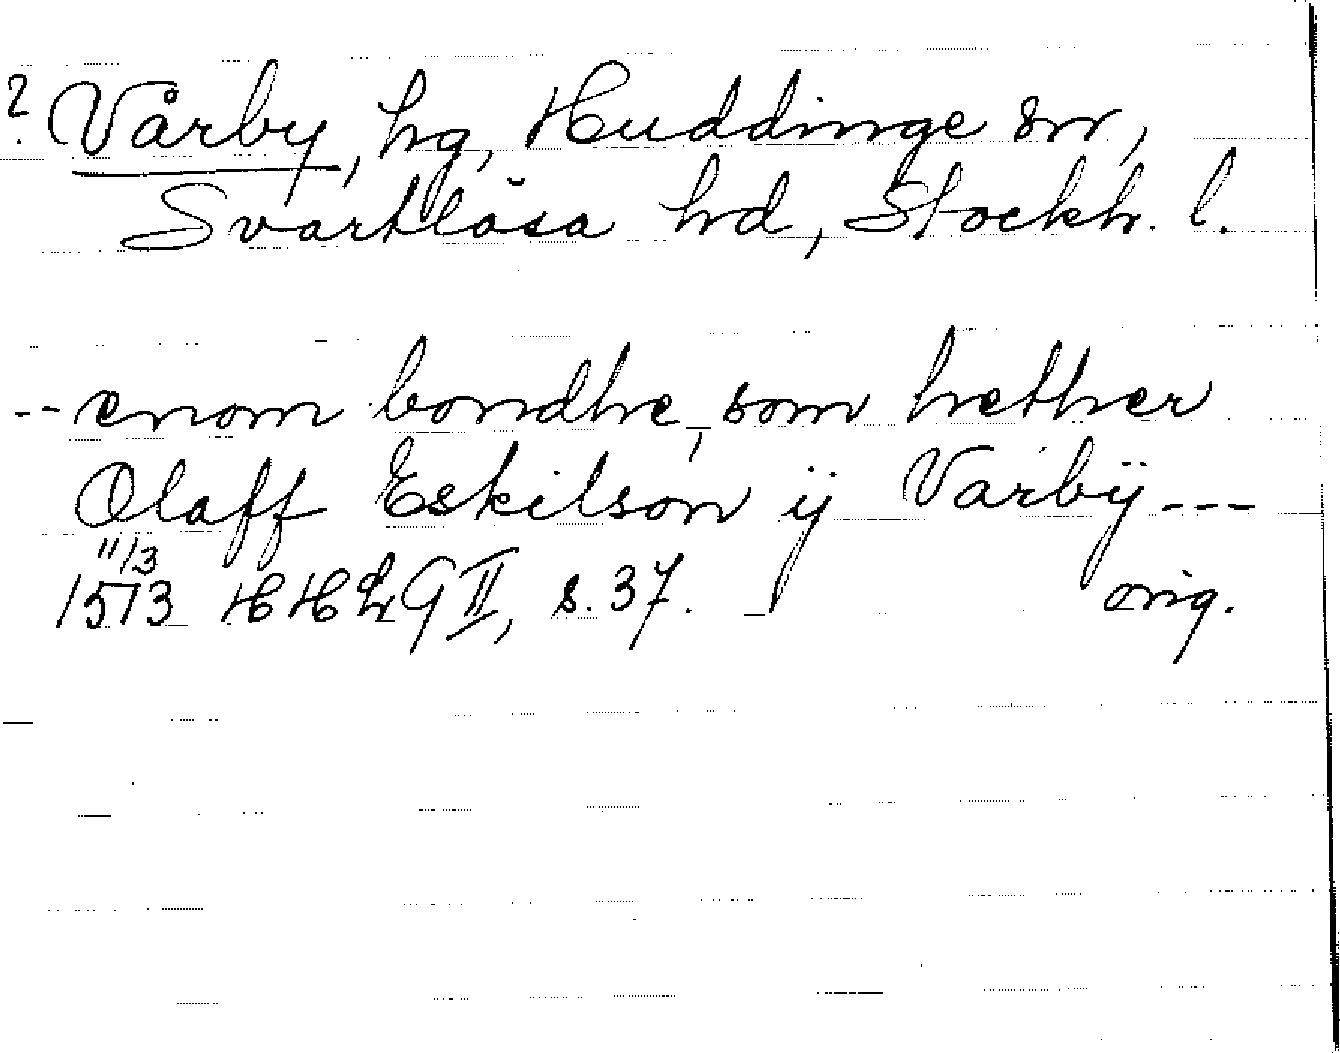 ? Vårby, hg, Huddinge sn,
Svartlösa hd, Stockh. l.
-- enom bondhe, som hether
Olaff Eskilson ij Varbÿ ---
11/3
1513 HHh G II, s. 37. orig.